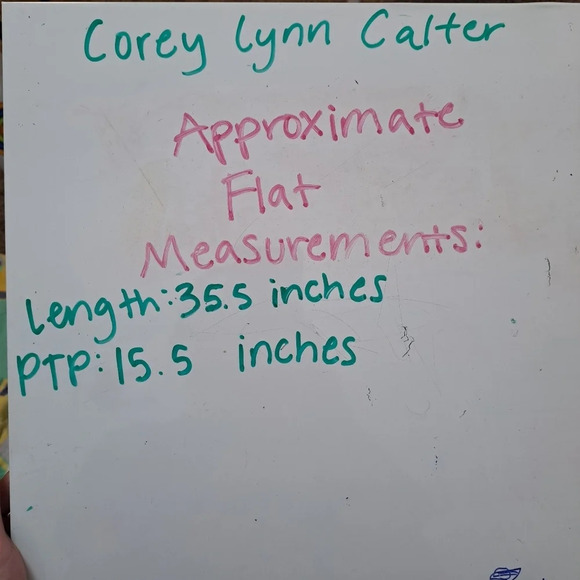 Corey Lynn Calter
Approximate
Flat
Measurements:
Length: 35.5 inches
PTP: 15.5 inches